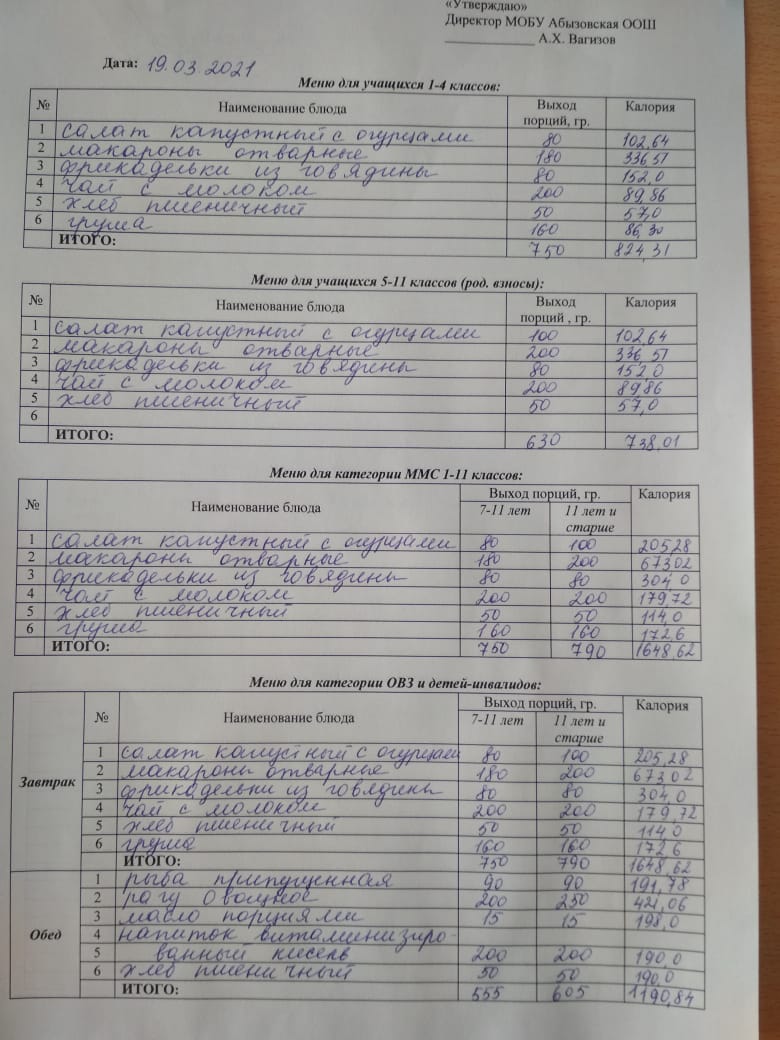 «Утверждаю»
Директор МОБУ Абызовская ООШ
____________ А.Х. Вагизов
Дата: 19.03.2021
Меню для учащихся 1-4 классов:
№ Наименование блюда Выход порций, гр. Калория
1 салат капустный с огурцами 80 102,64
2 макароны отварные 180 336,51
3 фрикадельки из говядины 80 152,0
4 чай с молоком 200 89,86
5 хлеб пшеничный 50 57,0
6 груша 160 86,30
ИТОГО: 750 824,31
Меню для учащихся 5-11 классов (род. взносы):
№ Наименование блюда Выход порций , гр. Калория
1 салат капустный с огурцами 100 102,64
2 макароны отварные 200 336,51
3 фрикадельки из говядины 80 152,0
4 чай с молоком 200 89,86
5 хлеб пшеничный 50 57,0
6
ИТОГО: 630 738,01
Меню для категории ММС 1-11 классов:
№ Наименование блюда Выход порций, гр. Калория
7-11 лет 11 лет и старше
1 салат капустный с огурцами 80 100 205,28
2 макароны отварные 180 200 673,02
3 фрикадельки из говядины 80 80 304,0
4 чай с молоком 200 200 179,72
5 хлеб пшеничный 50 50 114,0
6 груша 160 160 172,6
ИТОГО: 750 790 1648,62
Меню для категории ОВЗ и детей-инвалидов:
№ Наименование блюда Выход порций, гр. Калория
7-11 лет 11 лет и старше
Завтрак
1 салат капустный с огурцами 80 100 205,28
2 макароны отварные 180 200 673,02
3 фрикадельки из говядины 80 80 304,0
4 чай с молоком 200 200 179,72
5 хлеб пшеничный 50 50 114,0
6 груша 160 160 172,6
ИТОГО: 750 790 1648,62
Обед
1 рыба припущенная 90 90 191,78
2 рагу овощное 200 250 421,06
3 масло порциями 15 15 198,0
4 напиток витаминизиро-
5 ванный кисель 200 200 190,0
6 хлеб пшеничный 50 50 190,0
ИТОГО: 555 605 1190,84